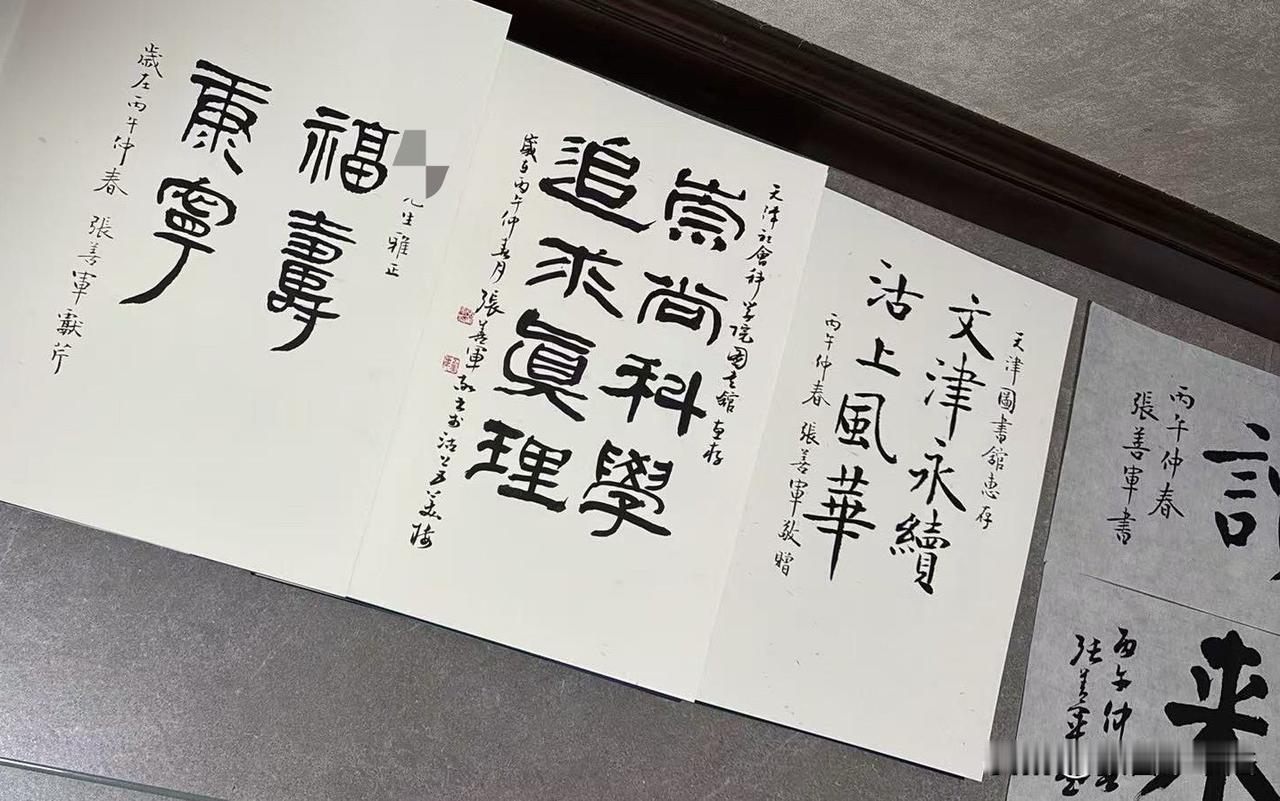 天津圖書館惠存
文津永續
沽上風華
丙午仲春 張善軍敬贈
天津社會科學院圖書館惠存
崇尚科學
追求眞理
歲在丙午仲春月 張善軍敬書於沽上
先生雅正
福壽
康寧
歲在丙午仲春 張善軍獻芹
丙午仲春
張善軍書
来
丙午仲春
張善軍